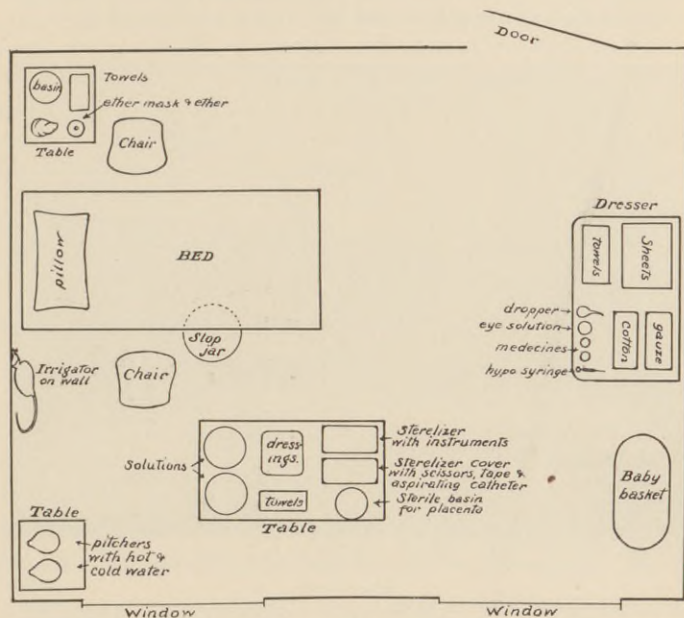 Door
basin
Towels
ether mask & ether
Table
Chair
pillow
BED
Slop
jar
Irrigator
on wall
Chair
Dresser
Towels
Sheets
dropper
eye solution
medecines
hypo syringe
Cotton
gauze
Solutions
dress-
ings.
towels
Sterelizer
with instruments
Sterelizer cover
with scissors, Tape &
aspirating catheter
Sterile basin
for placenta
Table
Baby
basket
Table
pitchers
with hot &
cold water
Window
Window